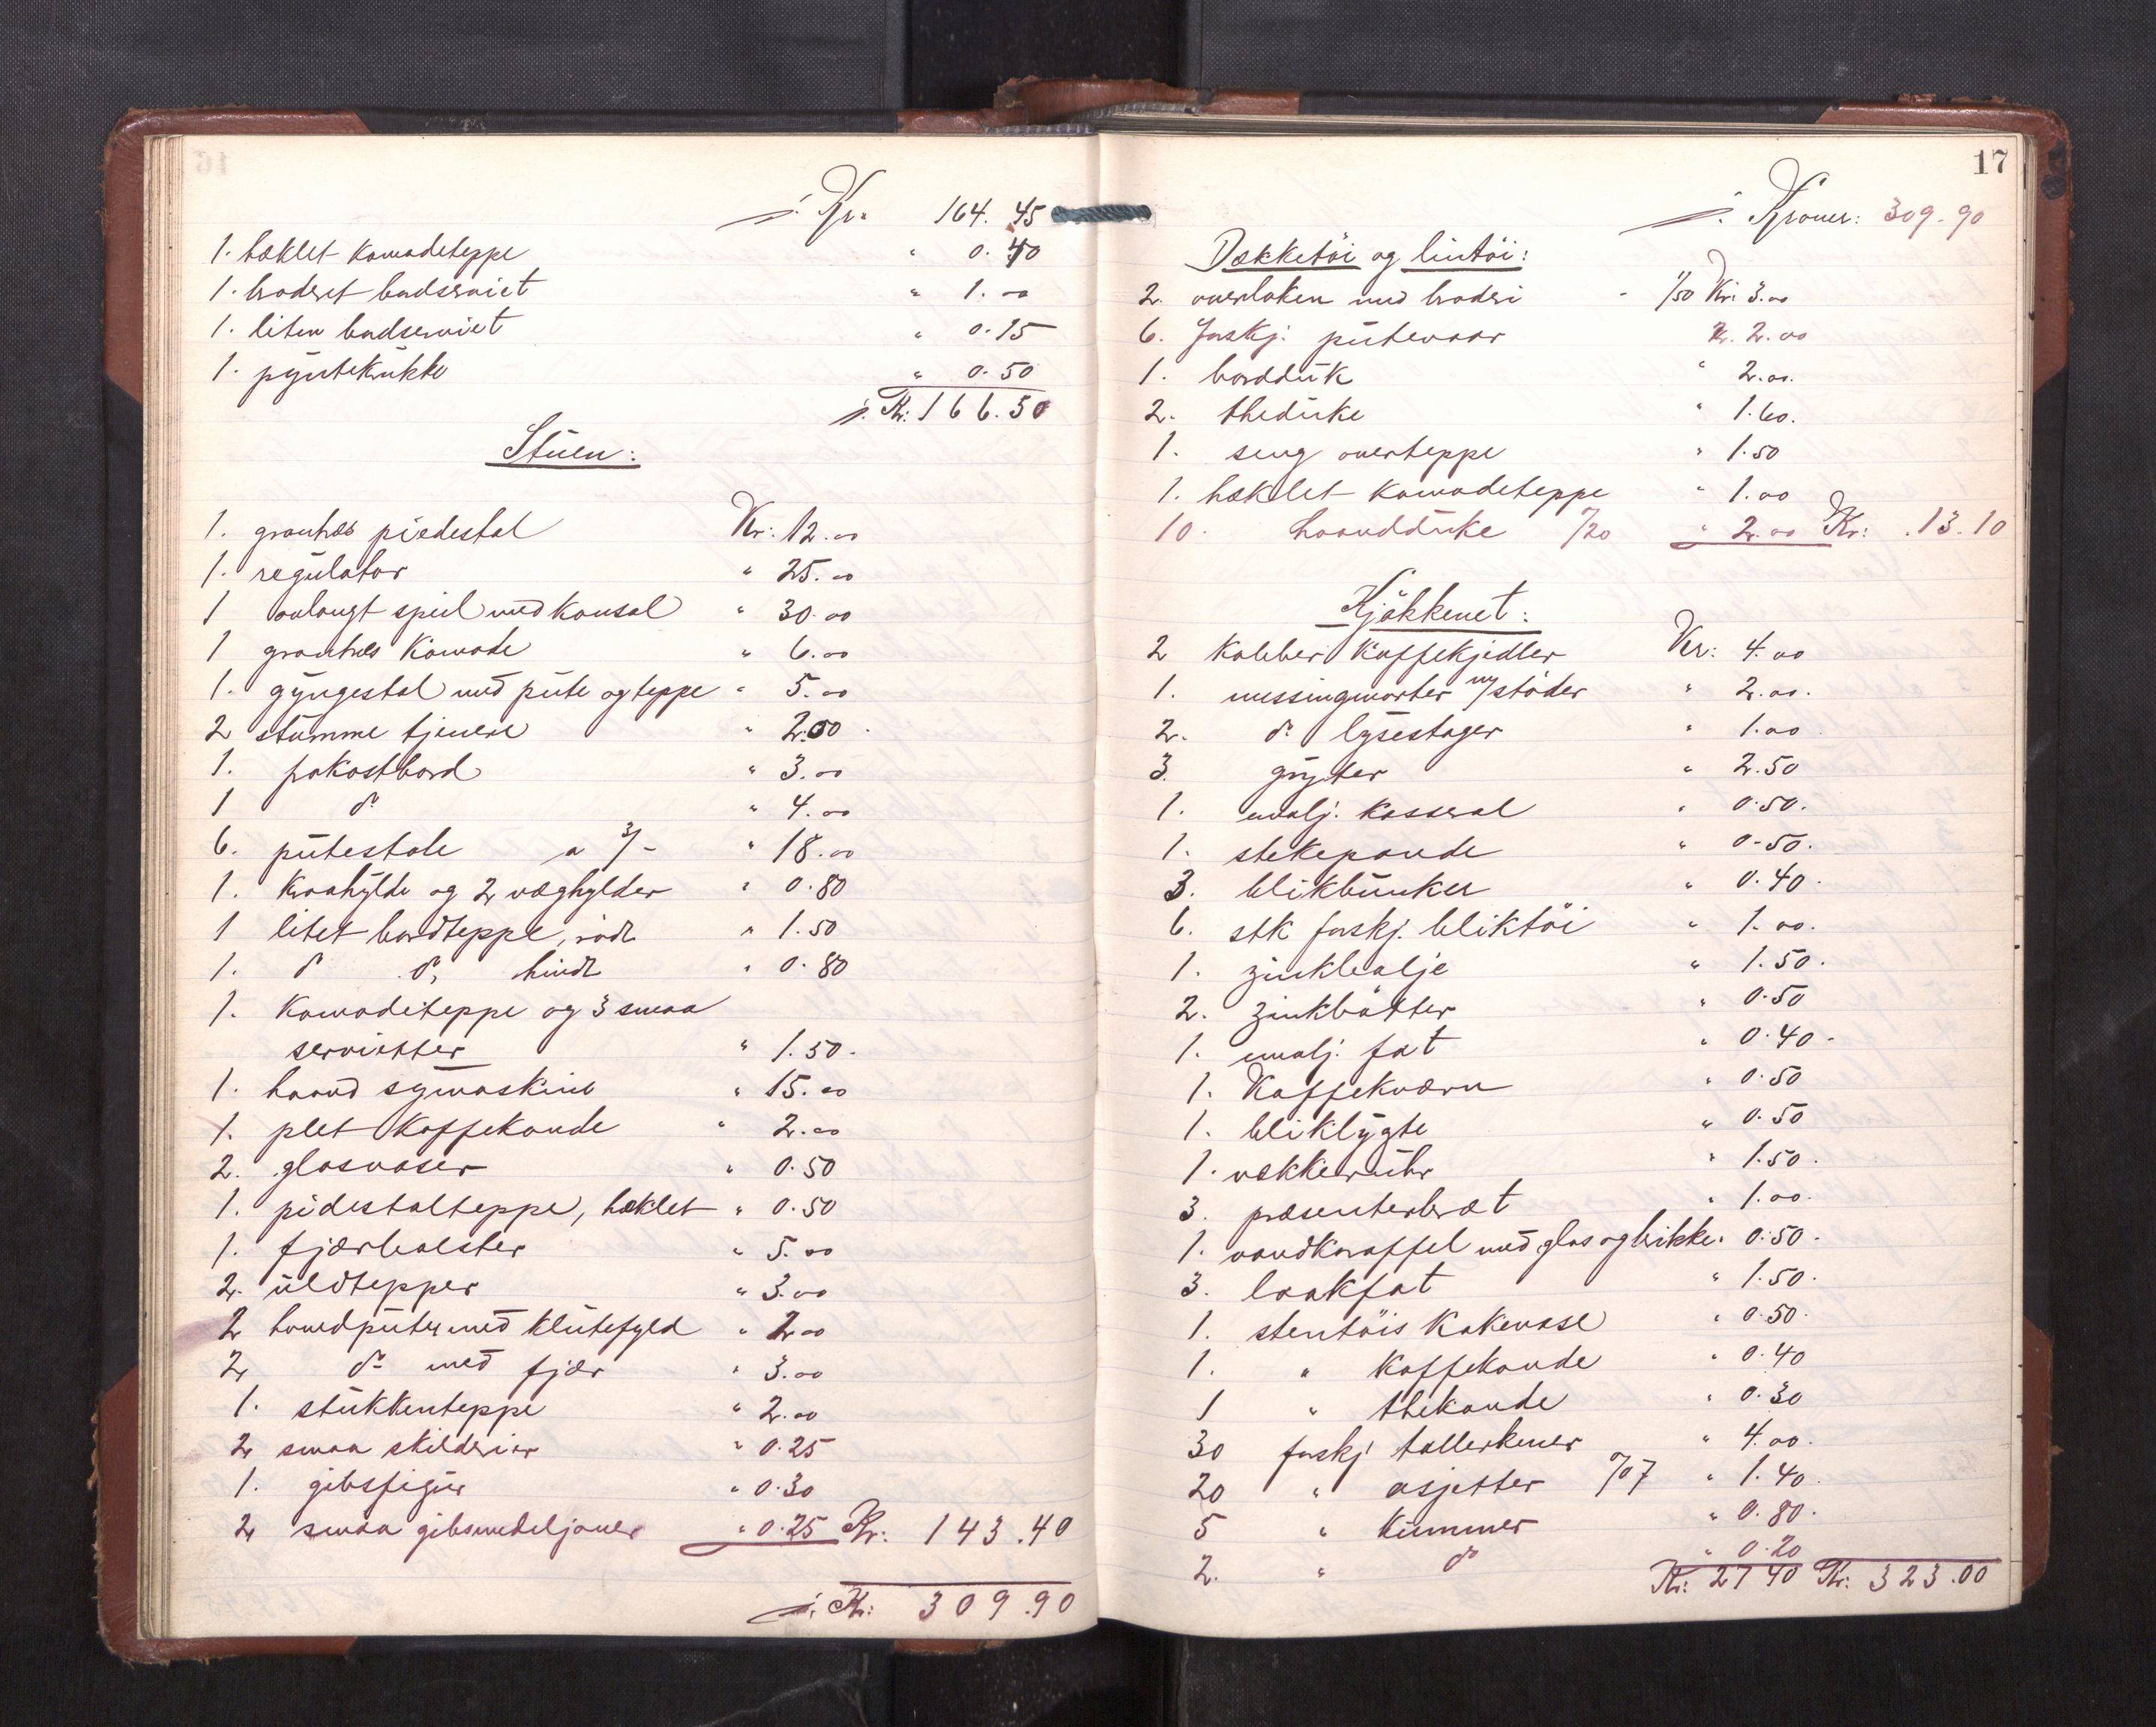 ÷. Kr. 164.45
1. hæklet komodeteppe " 0.40
1. broderet bordserviet " 1.00
1. liten bordserviet " 0.15
1. pyntekrukke " 0.50
÷. Kr: 166.50
Stuen:
1. grantræs piedestal Kr: 12.00
1. regulator " 25.00
1 avlangt speil med konsol " 30.00
1 grantræs komode " 6.00
1. gyngestol med pute og teppe " 5.00
2 stumme tjenere " 2.00
1. frokostbord " 3.00
1 do " 4.00
6. putestole a 3/- " 18.00
1. kraahylde og 2 væghylder " 0.80
1 litet bordteppe, rødt " 1.50
1. do do, hvidt " 0.80
1. komodeteppe og 3 smaa
servietter " 1.50.
1. haand symaskine " 15.00
1. plet kaffekande " 2.00
2. glasvaser " 0.50
1. pidestalteppe, hæklet " 0.50
1. fjærbolster " 5.00
2. uldtepper " 3.00
2 hovedputer med klutefyld " 2.00
2 do med fjær " 3.00
1. stukkenteppe " 2.00
2 smaa skilderier " 0.25
1. gibsfigur " 0.30
2 smaa gibsmedeljoner " 0.25 Kr: 143.40
÷. Kr: 309.90
17
÷. Kroner: 309.90
Dækketöi og lintöi:
2. overlaken med broderi - 1/50 Kr: 3.00
6. forskj. putevaar Kr. 2.00
1. bordduk " 2.00.
2. theduke " 1.60.
1. seng overteppe " 1.50
1. hæklet komodeteppe " 1.00
10. haandduke /20 " 2.00 Kr: 13.10
Kjökkenet:
2 kobber kaffekjedler Kr: 4.00
1. messingmorter m/ stöder " 2.00.
2. do lysestager " 1.00
3. gryter " 2.50
1. emalj. kasserol " 0.50.
1. stekepande " 0.50.
3. blikbunker " 0.40.
6. stk forskj. bliktöi " 1.00.
1. zinkbalje " 1.50.
2. zinkbötter " 0.50
1. emalj. fat " 0.40.
1. Kaffekværn " 0.50
1. bliklygte " 0.50
1. vækkeruhr " 1.50.
3. præsenterbræt " 1.00.
1. vandkaraffel med glas og brikke. 0.50.
3. laakfat " 1.50.
1. stentöis kakevase " 0.50.
1. " kaffekande " 0.40
1 " thekande " 0.30
30 forskj tallerkener " 4.00.
20 " asjetter /07 " 1.40.
5 " kummer " 0.80.
2. " do " 0.20
Kr: 27 40 Kr: 323.00